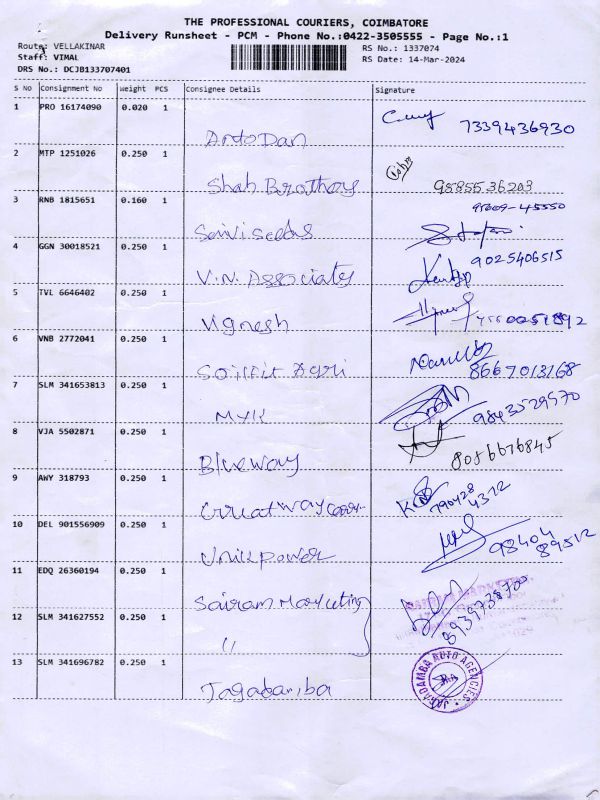 THE PROFESSIONAL COURIERS, COIMBATORE
Delivery Runsheet - PCM - Phone No.:0422-3505555 - Page No.:1
Route: VELLAKINAR
RS No.: 1337074
Staff: VIMAL
RS Date: 14-Mar-2024
DRS No.: DCJB133707401
S No Consignment No Weight PCS Consignee Details Signature
1 PRO 16174090 0.020 1
ArdoDan 7339436930
2 MTP 1251026 0.250 1
Shah Brothers 9585536203
3 RNB 1815651 0.160 1
4 GGN 30018521 0.250 1
V.N. Associates 9025406515
5 TVL 6646402 0.250 1
Vignesh
6 VNB 2772041 0.250 1
8667013168
7 SLM 341653813 0.250 1
MYK 9843529570
8 VJA 5502871 0.250 1
Blueway 8056676845
9 AWY 318793 0.250 1
790428
4372
10 DEL 901556909 0.250 1
98404
89512
11 EDQ 26360194 0.250 1
Sairam Marketing
8939738700
12 SLM 341627552 0.250 1
11
13 SLM 341696782 0.250 1
Jagadamba
JAGADAMBA AUTO AGENCIES